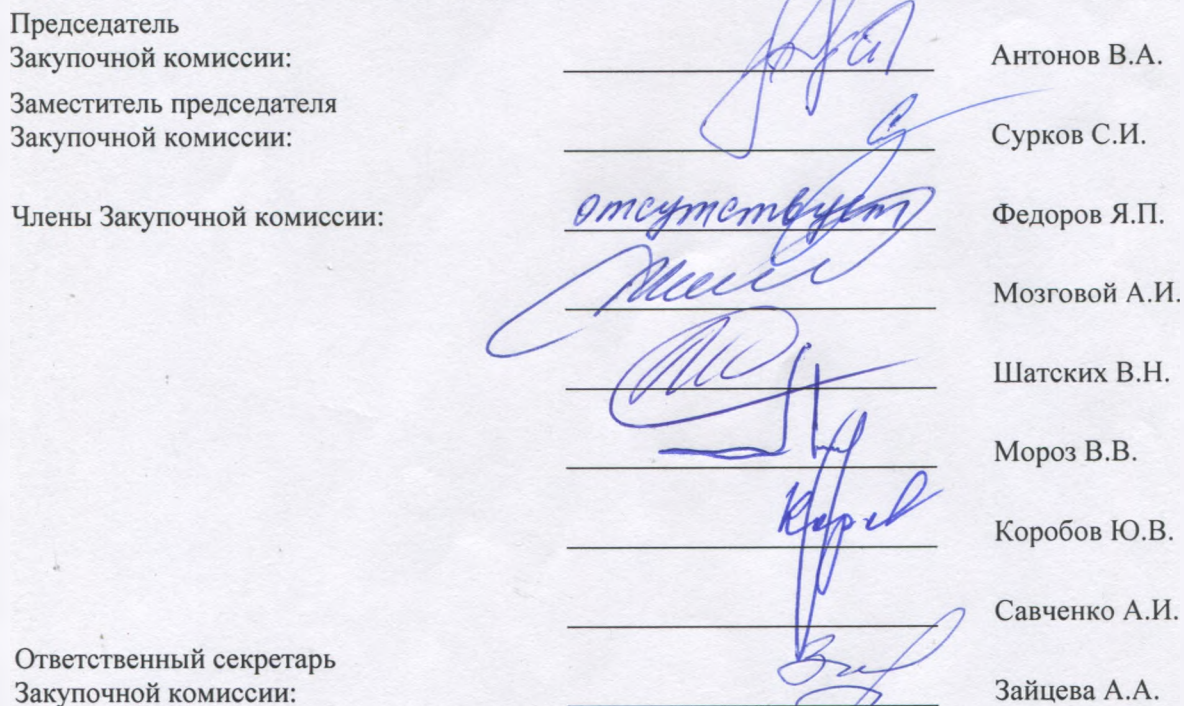 Председатель
Закупочной комиссии: Антонов В.А.
Заместитель председателя
Закупочной комиссии: Сурков С.И.
Члены Закупочной комиссии: отсутствует Федоров Я.П.
Мозговой А.И.
Шатских В.Н.
Мороз В.В.
Коробов Ю.В.
Савченко А.И.
Ответственный секретарь
Закупочной комиссии: Зайцева А.А.